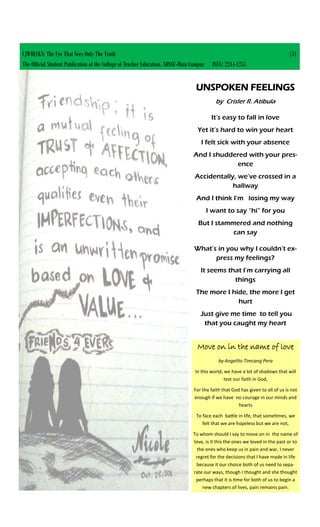 CJWRECKS: The Eye That Sees Only The Truth
The Official Student Publication of the College of Teacher Education, SDSSU-Main Campus ISSN: 2244-1255
Friendship; it is
a mutual feeling of
TRUST & AFFECTION,
accepting each others
qualities even their
IMPERFECTIONS, and
is an unwritten promise
based on LOVE &
VALUE...
FRIENDS 4 EVER
Nicole
UNSPOKEN FEELINGS
by Crisler R. Atibula
It's easy to fall in love
Yet it's hard to win your heart
I felt sick with your absence
And I shuddered with your pres-
ence
Accidentally, we've crossed in a
hallway
And I think I'm losing my way
I want to say "hi" for you
But I stammered and nothing
can say
What's in you why I couldn't ex-
press my feelings?
It seems that I'm carrying all
things
The more I hide, the more I get
hurt
Just give me time to tell you
that you caught my heart
Move on in the name of love
by Angelito Timcang Pero
In this world, we have a lot of shadows that will
test our faith in God,
For the faith that God has given to all of us is not
enough if we have no courage in our minds and
hearts.
To face each battle in life, that sometimes, we
felt that we are hopeless but we are not,
To whom should I say to move on in the name of
love, is it this the ones we loved in the past or to
the ones who keep us in pain and war, I never
regret for the decisions that I have made in life
because it our choice both of us need to sepa-
rate our ways, though I thought and she thought
perhaps that it is time for both of us to begin a
new chapters of lives, pain remains pain.